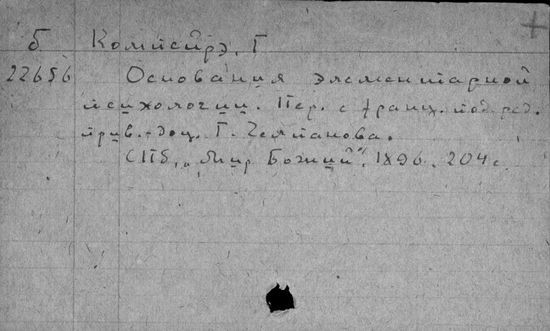 Б Компейрэ, Г
22656 Основания элементарной
психологии. Пер. с франц. под ред.
прив.-доц. Г. Челпанова.
СПБ, „Мир Божий", 1896. 204 с